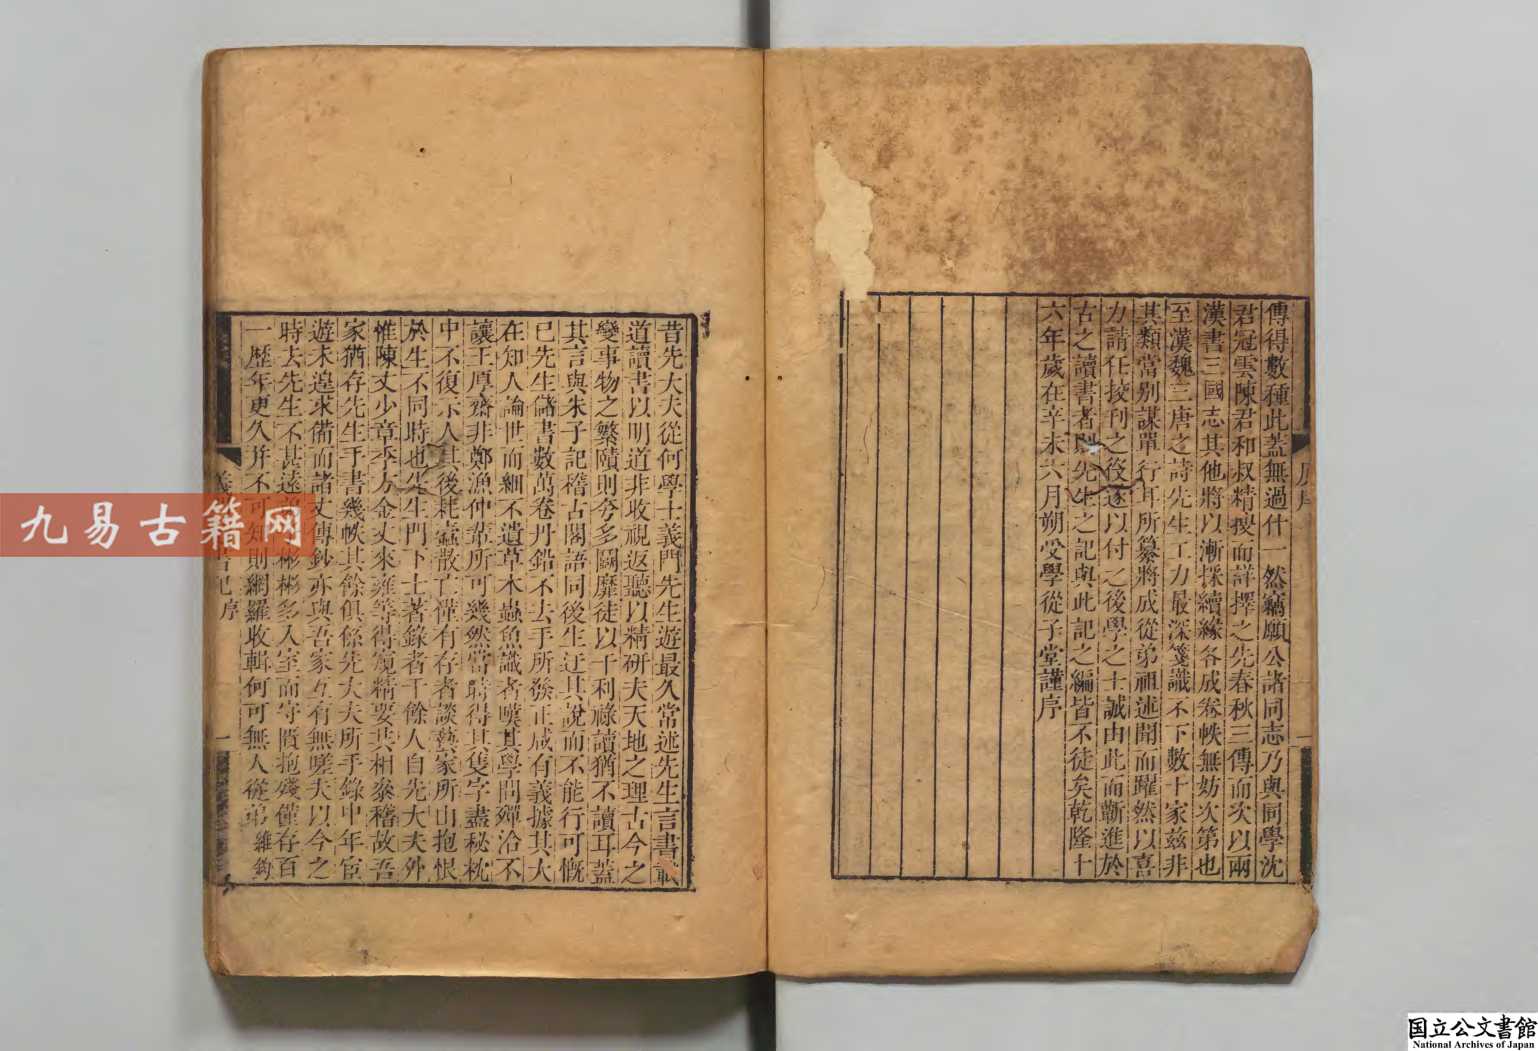 傳得數種此蓋無過什一然竊願公諸同志乃與同學沈
君冠雲陳君和叔精搜而詳擇之先春秋三傳而次以兩
漢書三國志其他將以漸採續緣各成卷帙無妨次第也
至漢魏三唐之詩先生工力最深箋識不下數十家茲非
其類當別謀單行耳所纂將成從弟祖述聞而躍然以喜
力請任挍刊之役遂以付之後學之士誠由此而蘄進於
古之讀書者則先生之記與此記之編皆不徒矣乾隆十
六年歲在辛未六月朔受學從子堂謹序
昔先大夫從何學士義門先生遊最久常述先生言書載
道讀書以明道非收視返聽以精研夫天地之理古今之
變事物之繁賾則夸多鬬靡徒以干利祿讀猶不讀耳蓋
其言與朱子記稽古閣語同後生迂其說而不能行可慨
已先生儲書數萬卷丹鉛不去手所發正咸有義據其大
在知人論世而細不遺草木蟲魚識者嘆其學問殫洽不
讓王厚齋非鄭漁仲輩所可幾然當時得其隻字盡秘枕
中不復示人其後耗蠹散亡僅有存者談藝家所由抱恨
於生不同時也先生門下士著錄者千餘人自先大夫外
惟陳丈少章李丈金丈來雍等得窺精要共相參稽故吾
家猶存先生手書幾帙其餘俱係先大夫所手錄中年宦
遊未遑求備而諸丈傳鈔亦與吾家互有無嗟夫以今之
時去先生不甚遠 彬彬多入室而守殘抱殘僅存百
一歷年更久并不可知則網羅收輯何可無人從弟維鈞
序
一
九易古籍网
国立公文書館
National Archives of Japan